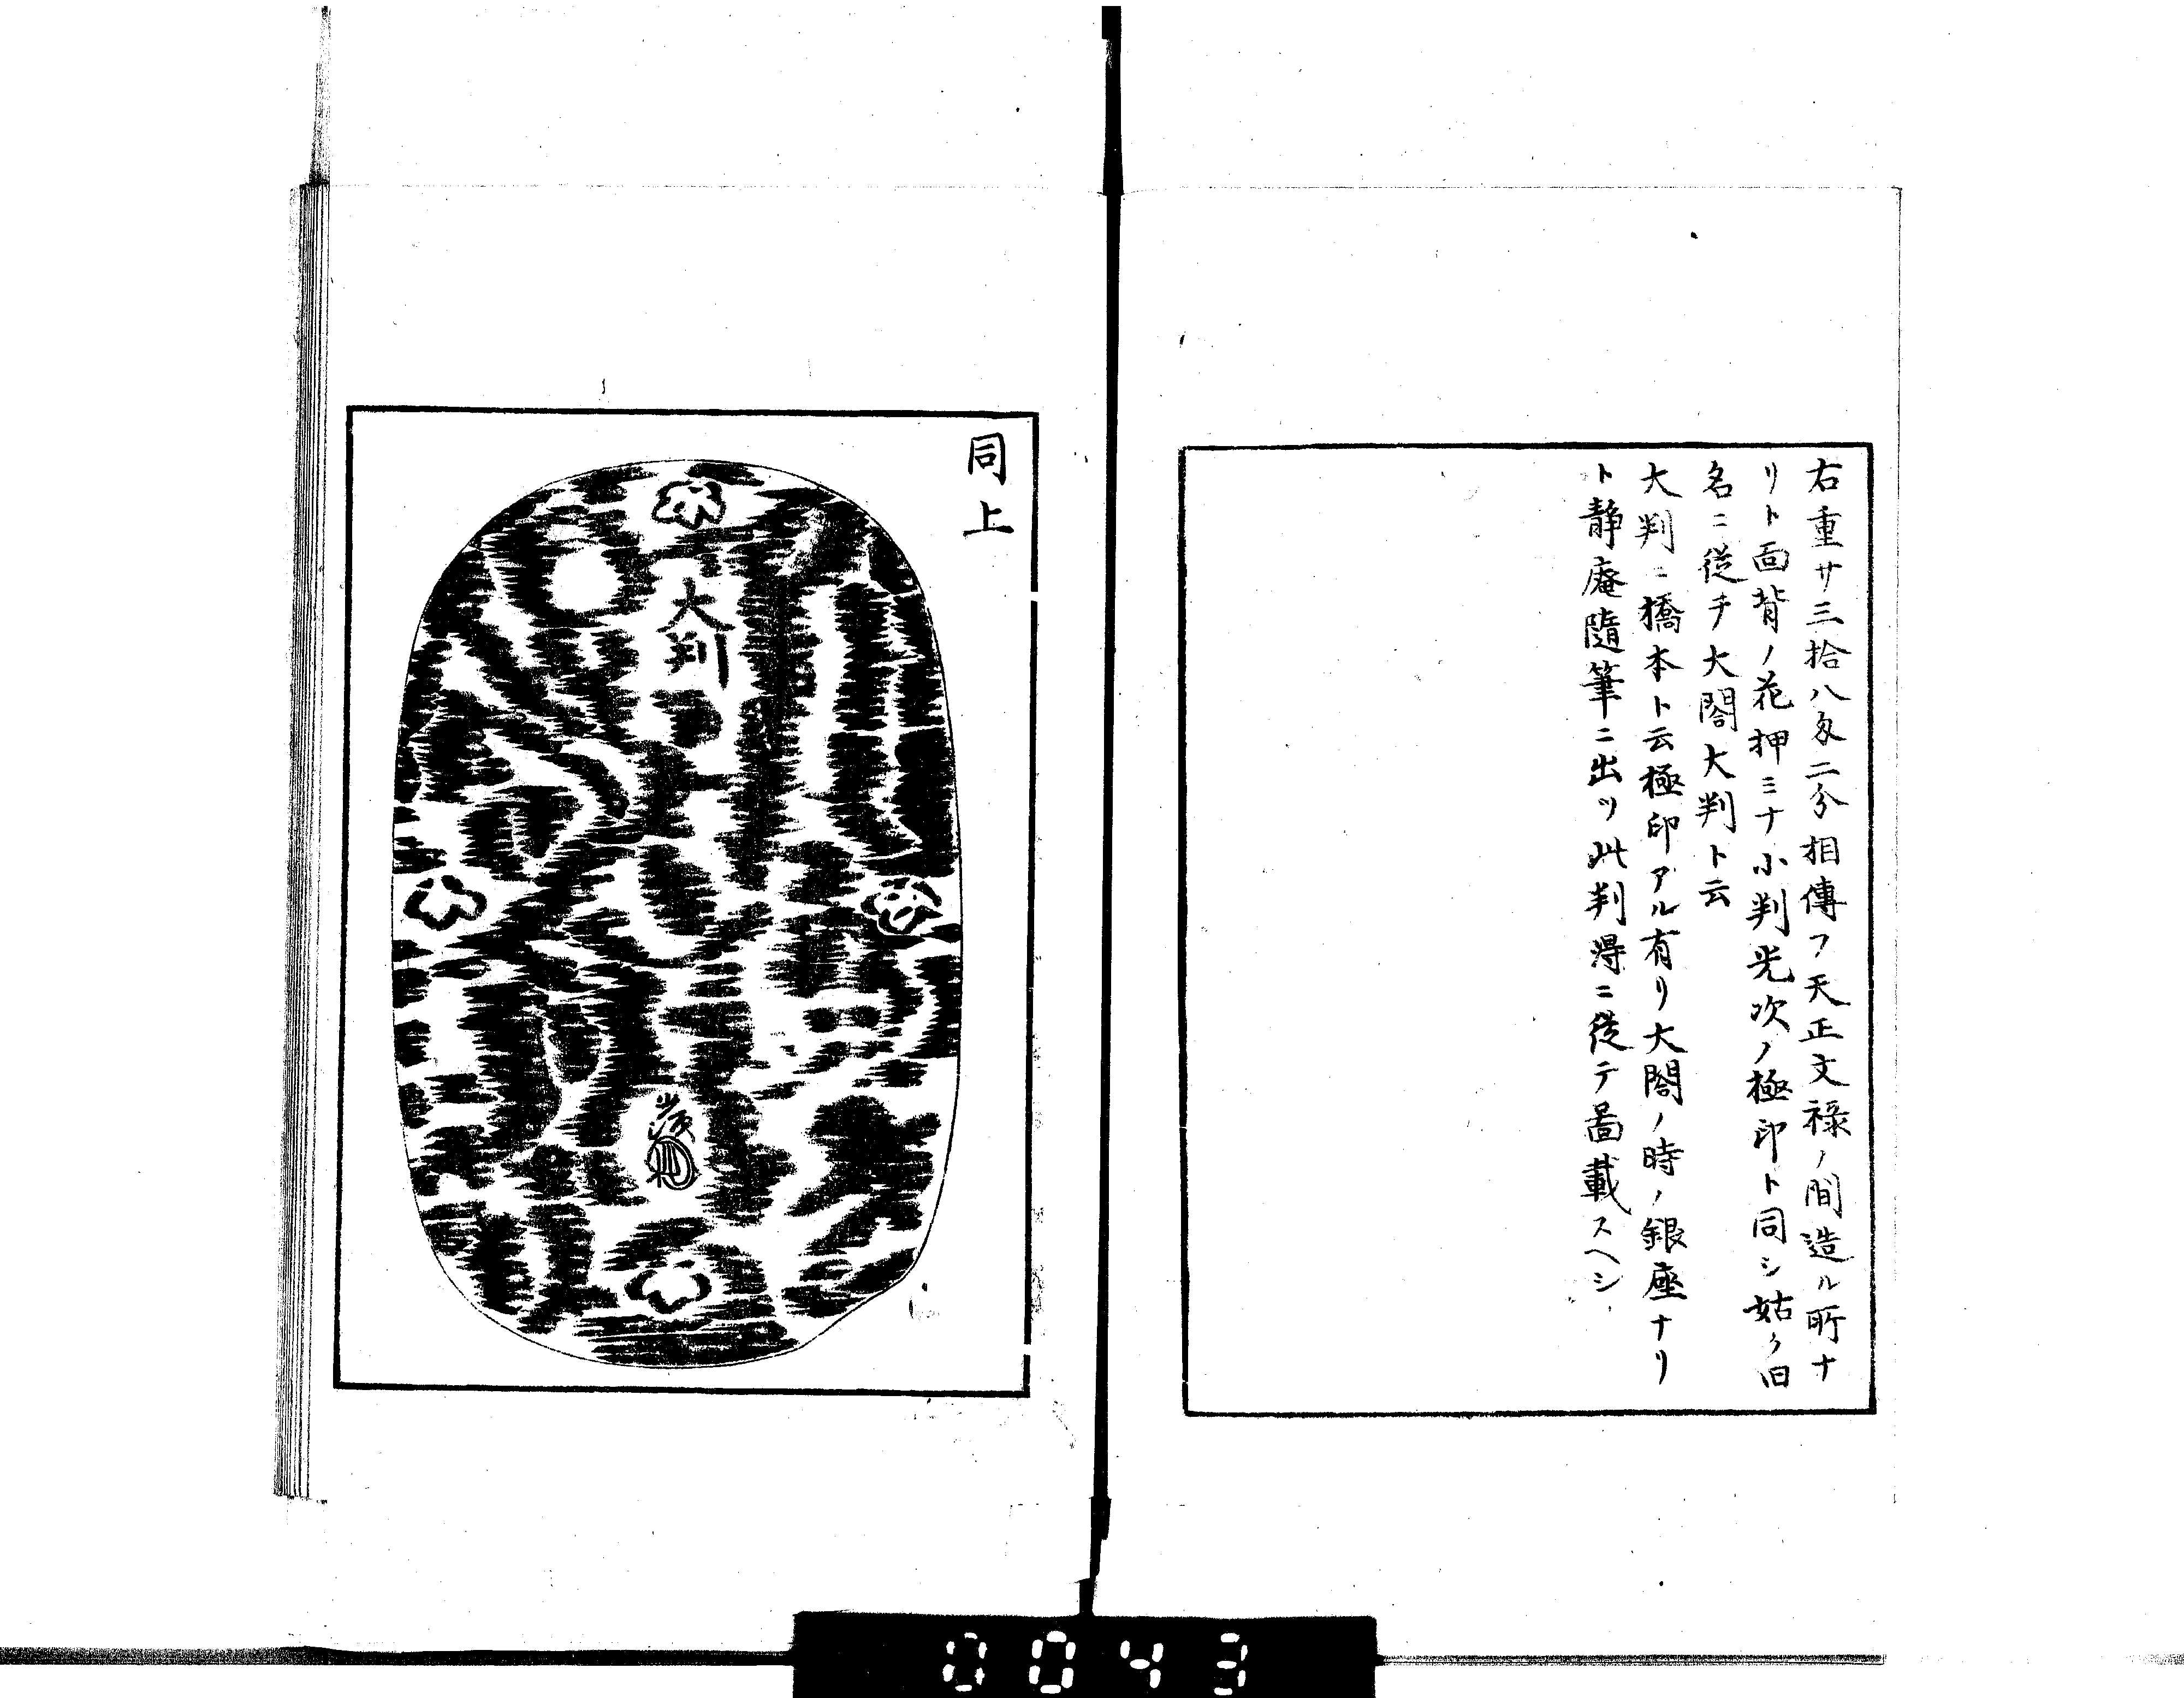 右重サ三拾八匁二分相傳フ天正文禄ノ間造ル所ナ
リト面背ノ花押ミナ小判光次ノ極印ト同シ姑ク旧
名ニ従テ大閤大判ト云
大判ニ橋本ト云極印アル有リ大閤ノ時ノ銀座ナリ
ト静庵隨筆ニ出ツ此判得ニ従テ啚載スヘシ
同上
大判
0043